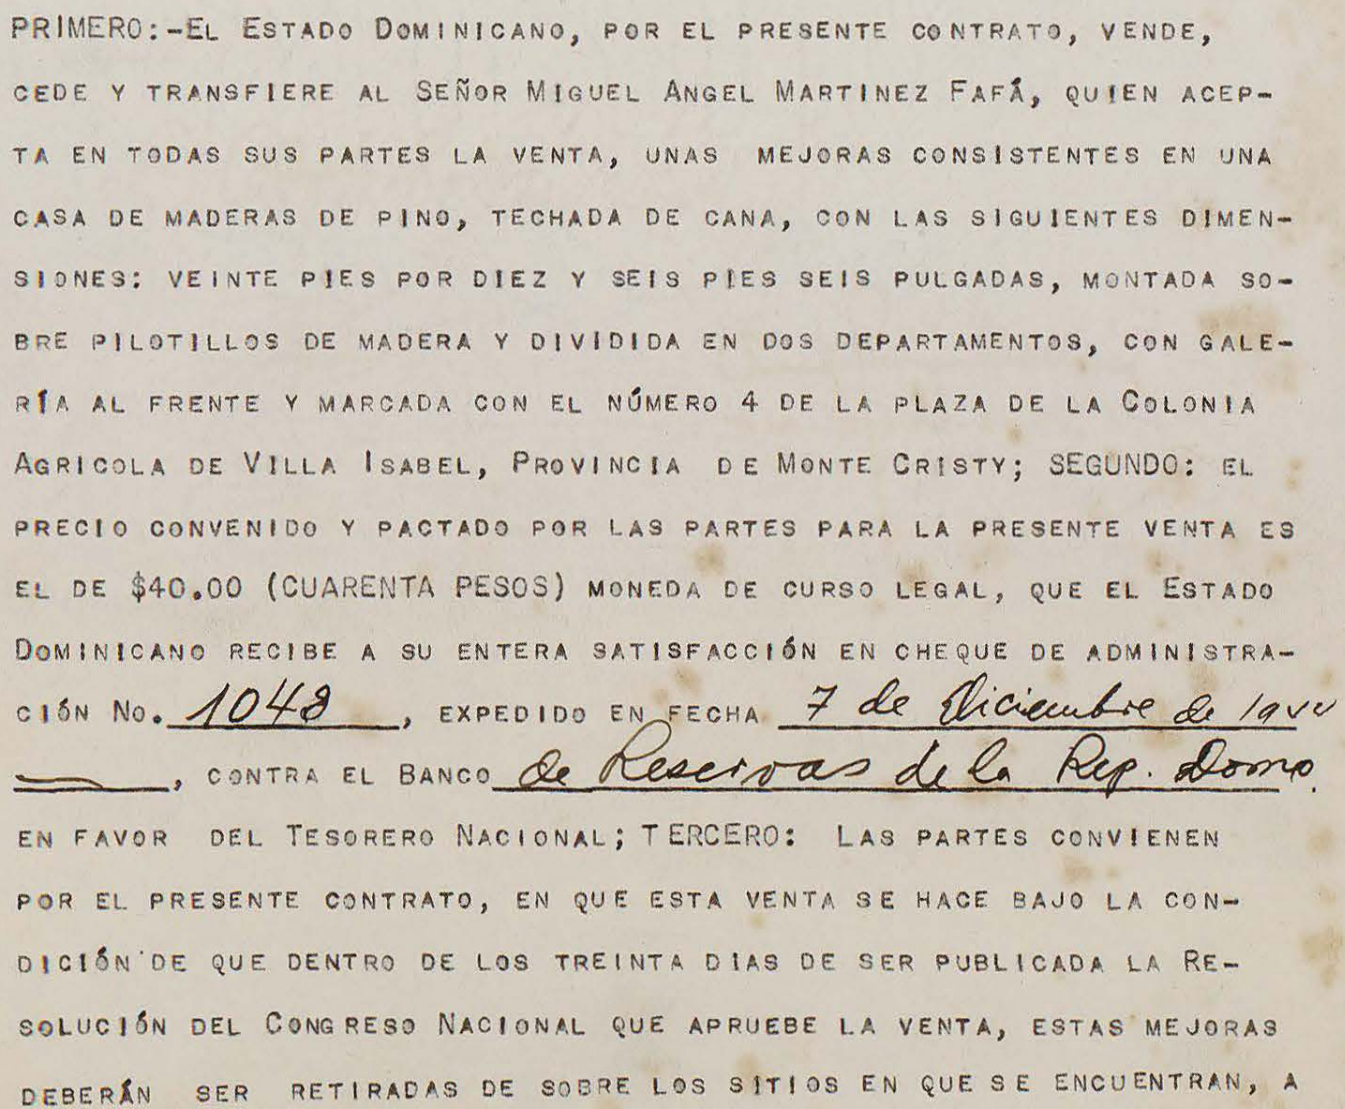 PRIMERO:-EL ESTADO DOMINICANO, POR EL PRESENTE CONTRATO, VENDE,
CEDE Y TRANSFIERE AL SEÑOR MIGUEL ANGEL MARTINEZ FAFÁ, QUIEN ACEP-
TA EN TODAS SUS PARTES LA VENTA, UNAS MEJORAS CONSISTENTES EN UNA
CASA DE MADERAS DE PINO, TECHADA DE CANA, CON LAS SIGUIENTES DIMEN-
SIONES: VEINTE PIES POR DIEZ Y SEIS PIES SEIS PULGADAS, MONTADA SO-
BRE PILOTILLOS DE MADERA Y DIVIDIDA EN DOS DEPARTAMENTOS, CON GALE-
RÍA AL FRENTE Y MARCADA CON EL NÚMERO 4 DE LA PLAZA DE LA COLONIA
AGRICOLA DE VILLA ISABEL, PROVINCIA DE MONTE CRISTY; SEGUNDO: EL
PRECIO CONVENIDO Y PACTADO POR LAS PARTES PARA LA PRESENTE VENTA ES
EL DE $40.00 (CUARENTA PESOS) MONEDA DE CURSO LEGAL, QUE EL ESTADO
DOMINICANO RECIBE A SU ENTERA SATISFACCIÓN EN CHEQUE DE ADMINISTRA-
CIÓN NO. 1048, EXPEDIDO EN FECHA 7 de Diciembre de
, CONTRA EL BANCO de Reservas de la Rep. Domo.
EN FAVOR DEL TESORERO NACIONAL; TERCERO: LAS PARTES CONVIENEN
POR EL PRESENTE CONTRATO, EN QUE ESTA VENTA SE HACE BAJO LA CON-
DICIÓN DE QUE DENTRO DE LOS TREINTA DIAS DE SER PUBLICADA LA RE-
SOLUCIÓN DEL CONGRESO NACIONAL QUE APRUEBE LA VENTA, ESTAS MEJORAS
DEBERÁN SER RETIRADAS DE SOBRE LOS SITIOS EN QUE SE ENCUENTRAN, A